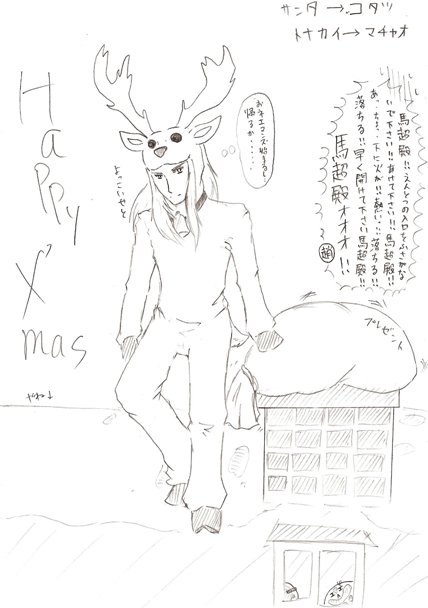 サンタ→コタツ
トナカイ→マチャオ
馬超殿!!えんとつの入口をふさがな
いで下さい!!あけて下さい!!馬超殿!!
あっ…ちょ…下に火が!!熱い…落ちる!!
落ちる!!早く開けて下さい馬超殿!!
馬超殿オオオ!!
趙
帰るか……
よっこいせと
プレゼント
Happy
X'mas
やね↓